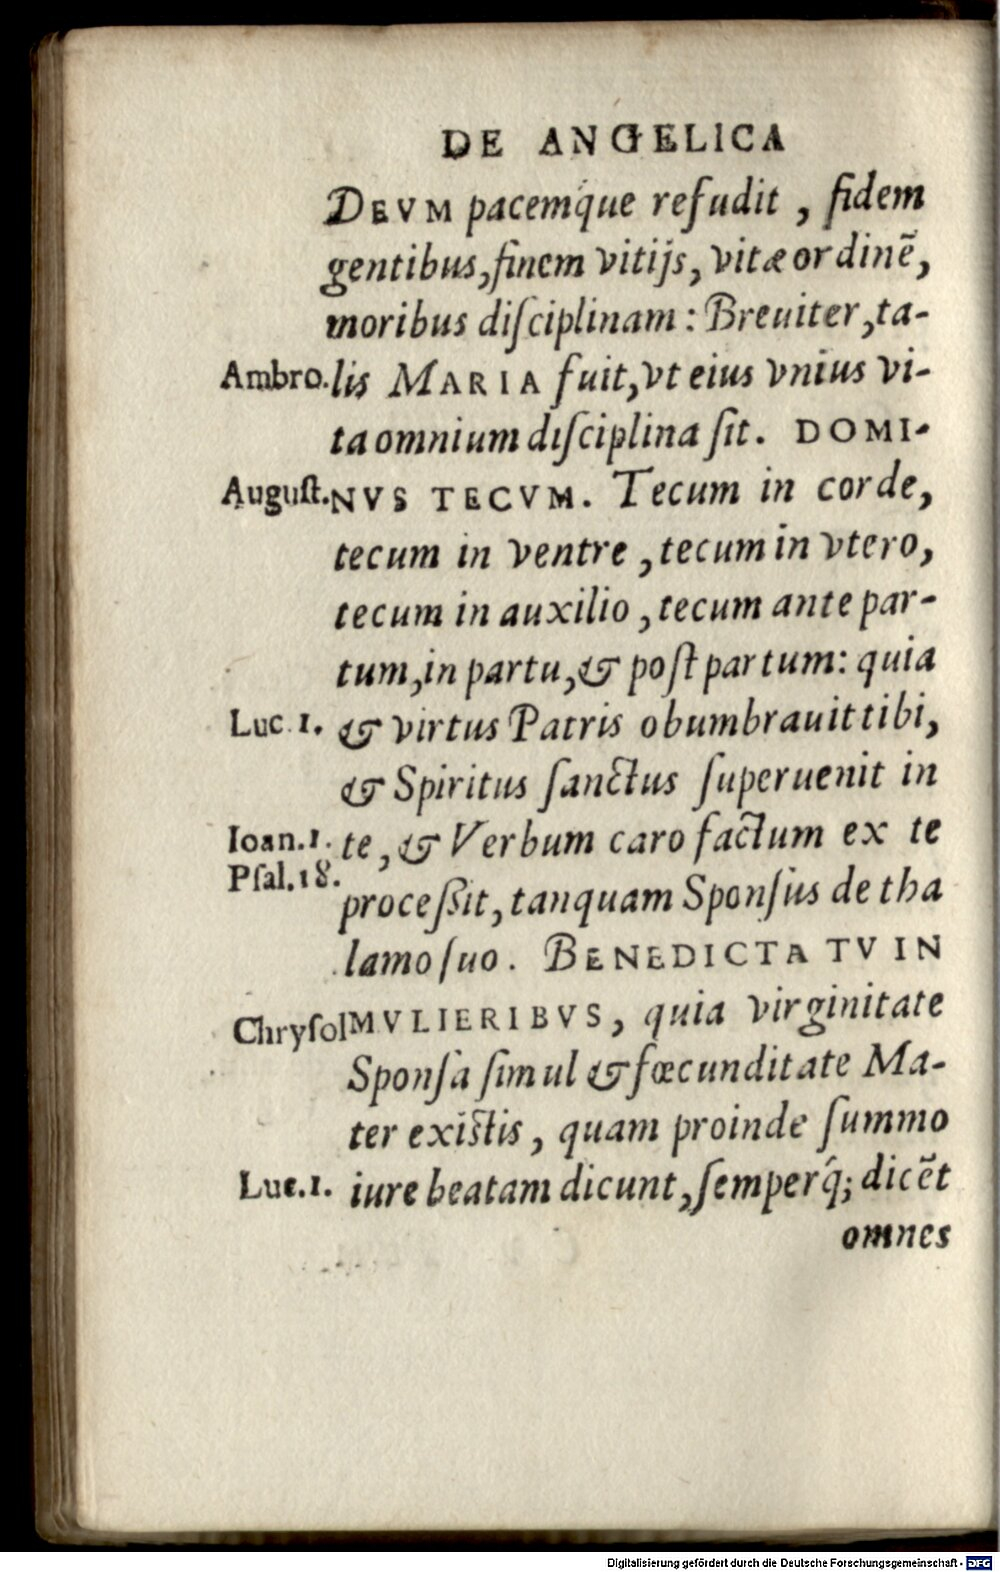 DE ANGELICA
DEVM pacemq́ue refudit, fidem
gentibus, finem vitijs, vitæ ordinẽ,
moribus diſciplinam: Breuiter, ta-
Ambro. lis MARIA fuit, vt eius vnius vi-
ta omnium diſciplina ſit. DOMI-
Auguſt. NVS TECVM. Tecum in corde,
tecum in ventre, tecum in vtero,
tecum in auxilio, tecum ante par-
tum, in partu, & poſt partum: quia
Luc. 1. & virtus Patris obumbrauit tibi,
& Spiritus ſanctus ſuperuenit in
Ioan. 1. te, & Verbum caro factum ex te
Pſal. 18. proceſſit, tanquam Sponſus de tha
lamo ſuo. BENEDICTA TV IN
Chryſol MVLIERIBVS, quia virginitate
Sponſa ſimul & fœcunditate Ma-
ter exiſtis, quam proinde ſummo
Luc. 1. iure beatam dicunt, ſemperq́; dicẽt
omnes
Digitalisierung gefördert durch die Deutsche Forschungsgemeinschaft - DFG